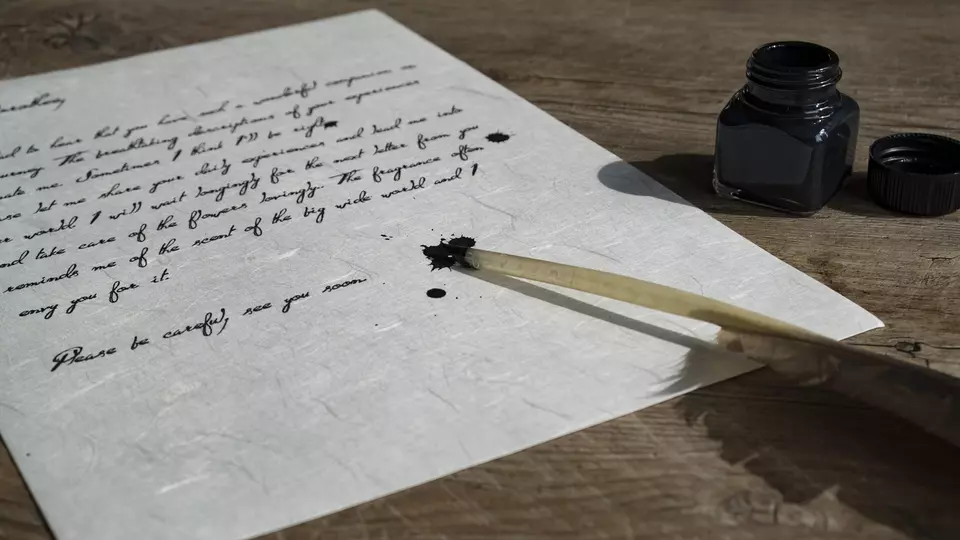 to hear that you have and a wonderful companion on
The breathtaking descriptions of your experiences
me. Sometimes I think I'll be right
let me share your daily experiences and lead me into
world I will wait longingly for the next letter from you
and take care of the flowers lovingly. The fragrance often
reminds me of the scent of the big wide world and I
envy you for it.
Please be careful, see you soon